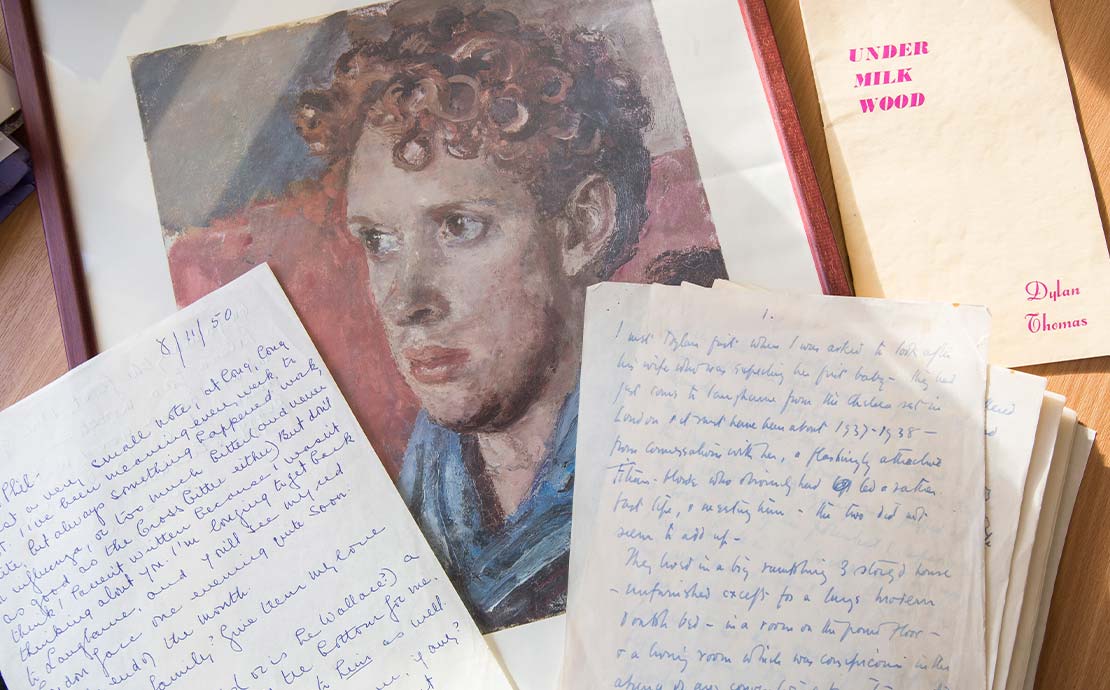 8/11/50
Phil-
a very small note, at long, long
I've been meaning every week, to
but always something happened: work,
influenza, or too much Bitter (and never
as good as the Cross Bitter either) But don't
think I haven't written because I wasn't
thinking about you. I'm longing to get back
to Laugharne, and you'll see my red
face one evening quite soon.
the month.
family? Give them my love
or is he Wallace?) a
the Bottom for me.
to him as well.
any?
1.
I met Dylan first when I was asked to look after
his wife who was expecting her first baby - they had
just come to Laugharne from the Chelsea set in
London & it must have been about 1937-1938 -
from conversation with her, a flashingly attractive
Titian-blonde who obviously had led a rather
fast life, & meeting him - the two did not
seem to add up -
They lived in a big rambling 3 storeyed house
- unfurnished except for a large modern
double bed - in a room on the ground floor -
& a living room which was conspicuous in the
UNDER
MILK
WOOD
Dylan
Thomas